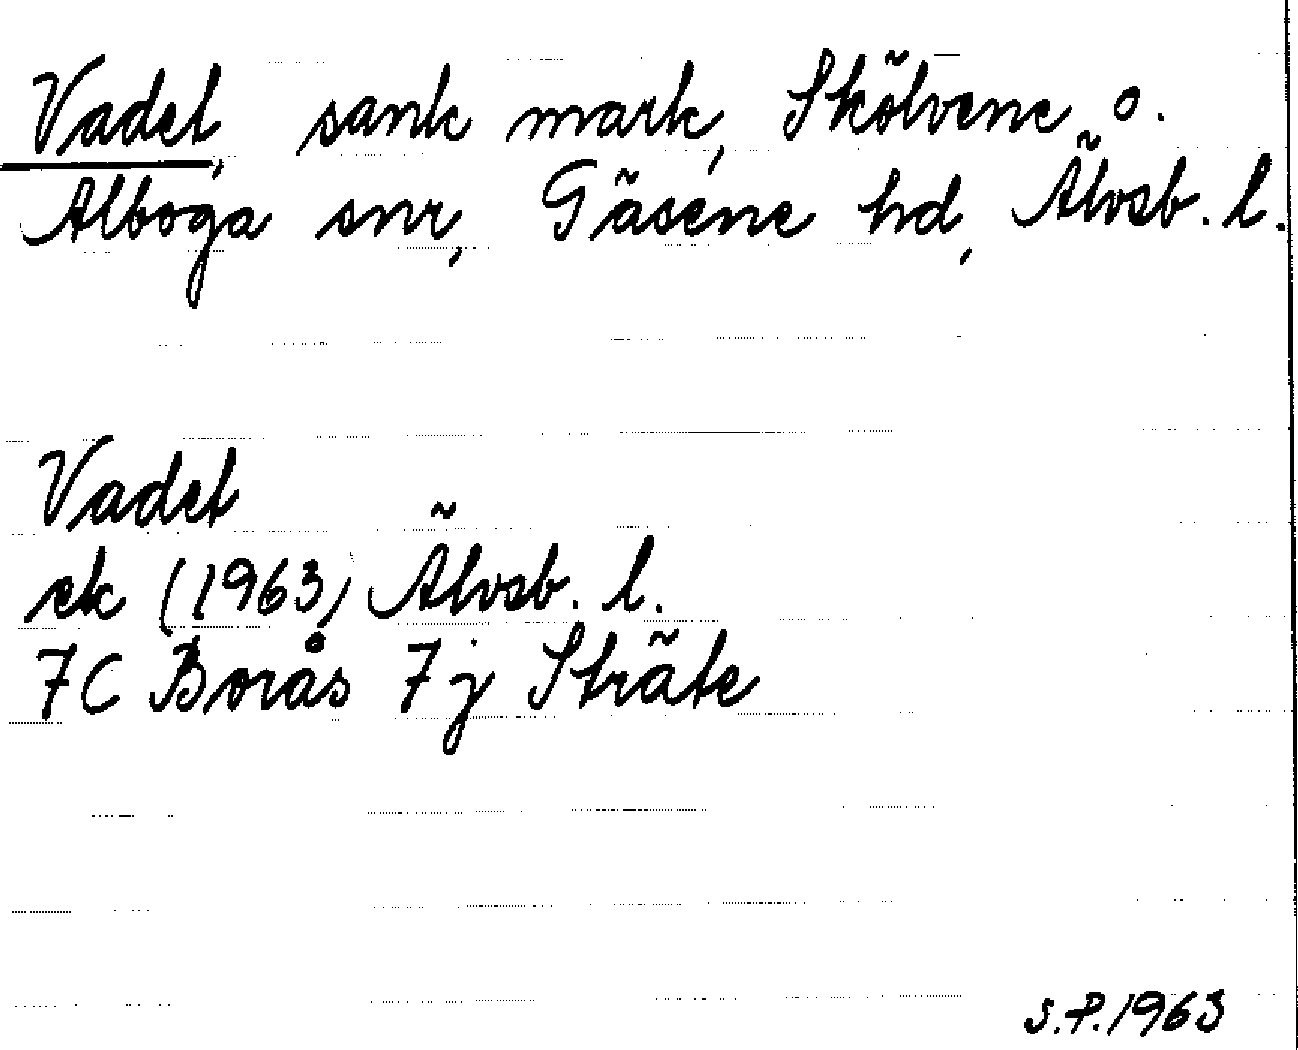 Vadet, sank mark, Skölvene o.
Alboga snr, Gäsene hd, Älvsb. l.
Vadet
ek (1963) Älvsb. l.
7C Borås 7j Sträte
S.P. 1963